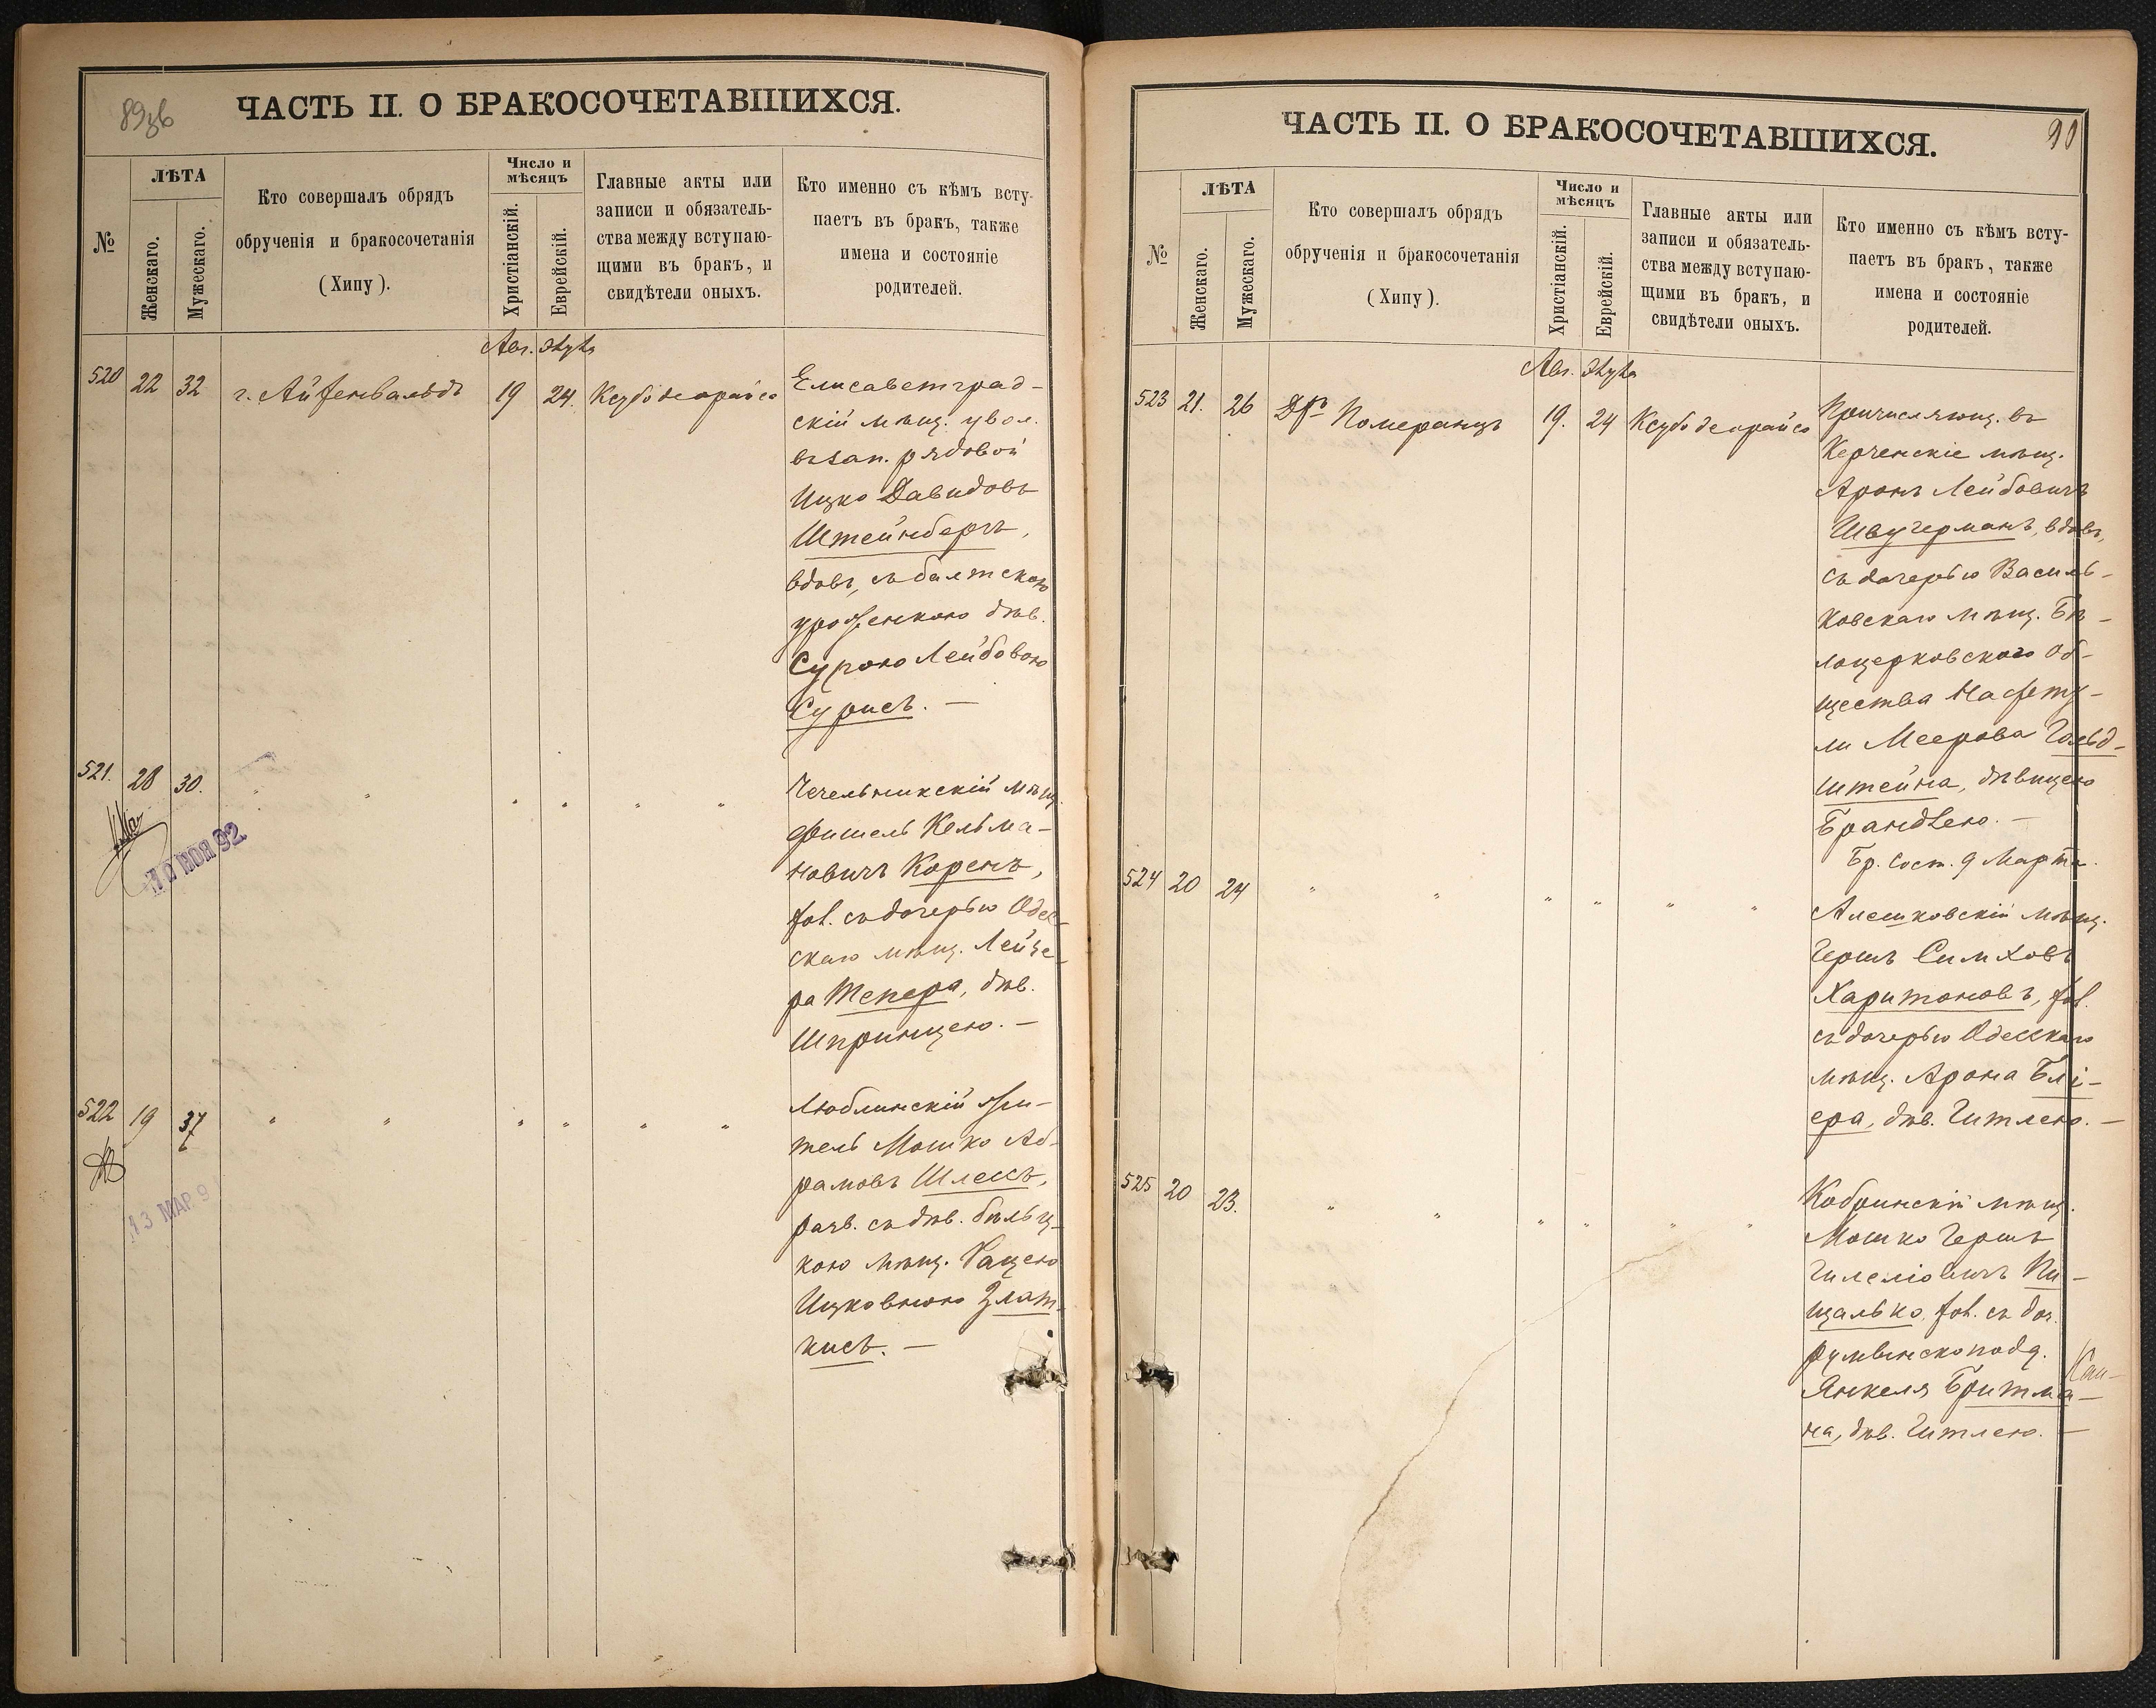 89об
ЧАСТЬ II. О БРАКОСОЧЕТАВШИХСЯ.
№
ЛѢТА
Женскаго.
Мужескаго.
Кто совершалъ обрядъ
обрученія и бракосочетанія
(Хипу).
Число и
мѣсяцъ
Христіанскій.
Еврейскій.
Главные акты или
записи и обязатель-
ства между вступаю-
щими въ бракъ, и
свидѣтели оныхъ.
Кто именно съ кѣмъ всту-
паетъ въ бракъ, также
имена и состояніе
родителей.
Авг. Элула
520 22 32 г. Айзенвальдъ 19 24. Ксубо деорайса
Елисаветград-
скій мѣщ. увол.
въ зап. рядовой
Ицко Давидовъ
Штейнбергъ,
вдовъ, съ балтскою
уроженкою дѣв.
Сурою Лейбовою
Сурисъ. —
521. 28 30. " " " " " "
Чечельникскій мѣщ.
Фишель Кельма-
новичъ Коренъ,
хол. съ дочерью Одес-
скаго мѣщ. Лейзе-
ра Тепера, дѣв.
Шпринцею. —
10 НОЯ 92
522 19 37 " " " " " "
Люблинскій жи-
тель Мошко Аб-
рамовъ Шлессъ,
разв. съ дѣв. бѣльц-
кою мѣщ. Рацею
Ицковною Злат-
кисъ. —
13 МАР 9
90
ЧАСТЬ II. О БРАКОСОЧЕТАВШИХСЯ.
№
ЛѢТА
Женскаго.
Мужескаго.
Кто совершалъ обрядъ
обрученія и бракосочетанія
(Хипу).
Число и
мѣсяцъ
Христіанскій.
Еврейскій.
Главные акты или
записи и обязатель-
ства между вступаю-
щими въ бракъ, и
свидѣтели оныхъ.
Кто именно съ кѣмъ всту-
паетъ въ бракъ, также
имена и состояніе
родителей.
Авг. Элула
523 21. 26 Дръ Померанцъ 19. 24 Ксубо деорайса
Причисляющ. въ
Керченскіе мѣщ.
Аронъ Лейбовичъ
Швугерманъ, вдовъ,
съ дочерью Василь-
ковскаго мѣщ. Бѣ-
лоцерковскаго об-
щества Нафту-
ли Меерова Гольд-
штейна, дѣвицею
Брандлею. —
Бр. сост. 9 Марта.
524 20 24 " " " " " "
Алешковскій мѣщ.
Гершъ Симховъ
Харитоновъ, хол.
съ дочерью Одесскаго
мѣщ. Арона Блі-
ера, дѣв. Гитлею. —
525 20 23. " " " " " "
Кобринскій мѣщ.
Мошко Гершъ
Пи-
щалько, хол. съ доч.
румынскоподд.
Янкеля Бритма-
на, дѣв. Гитлею. —